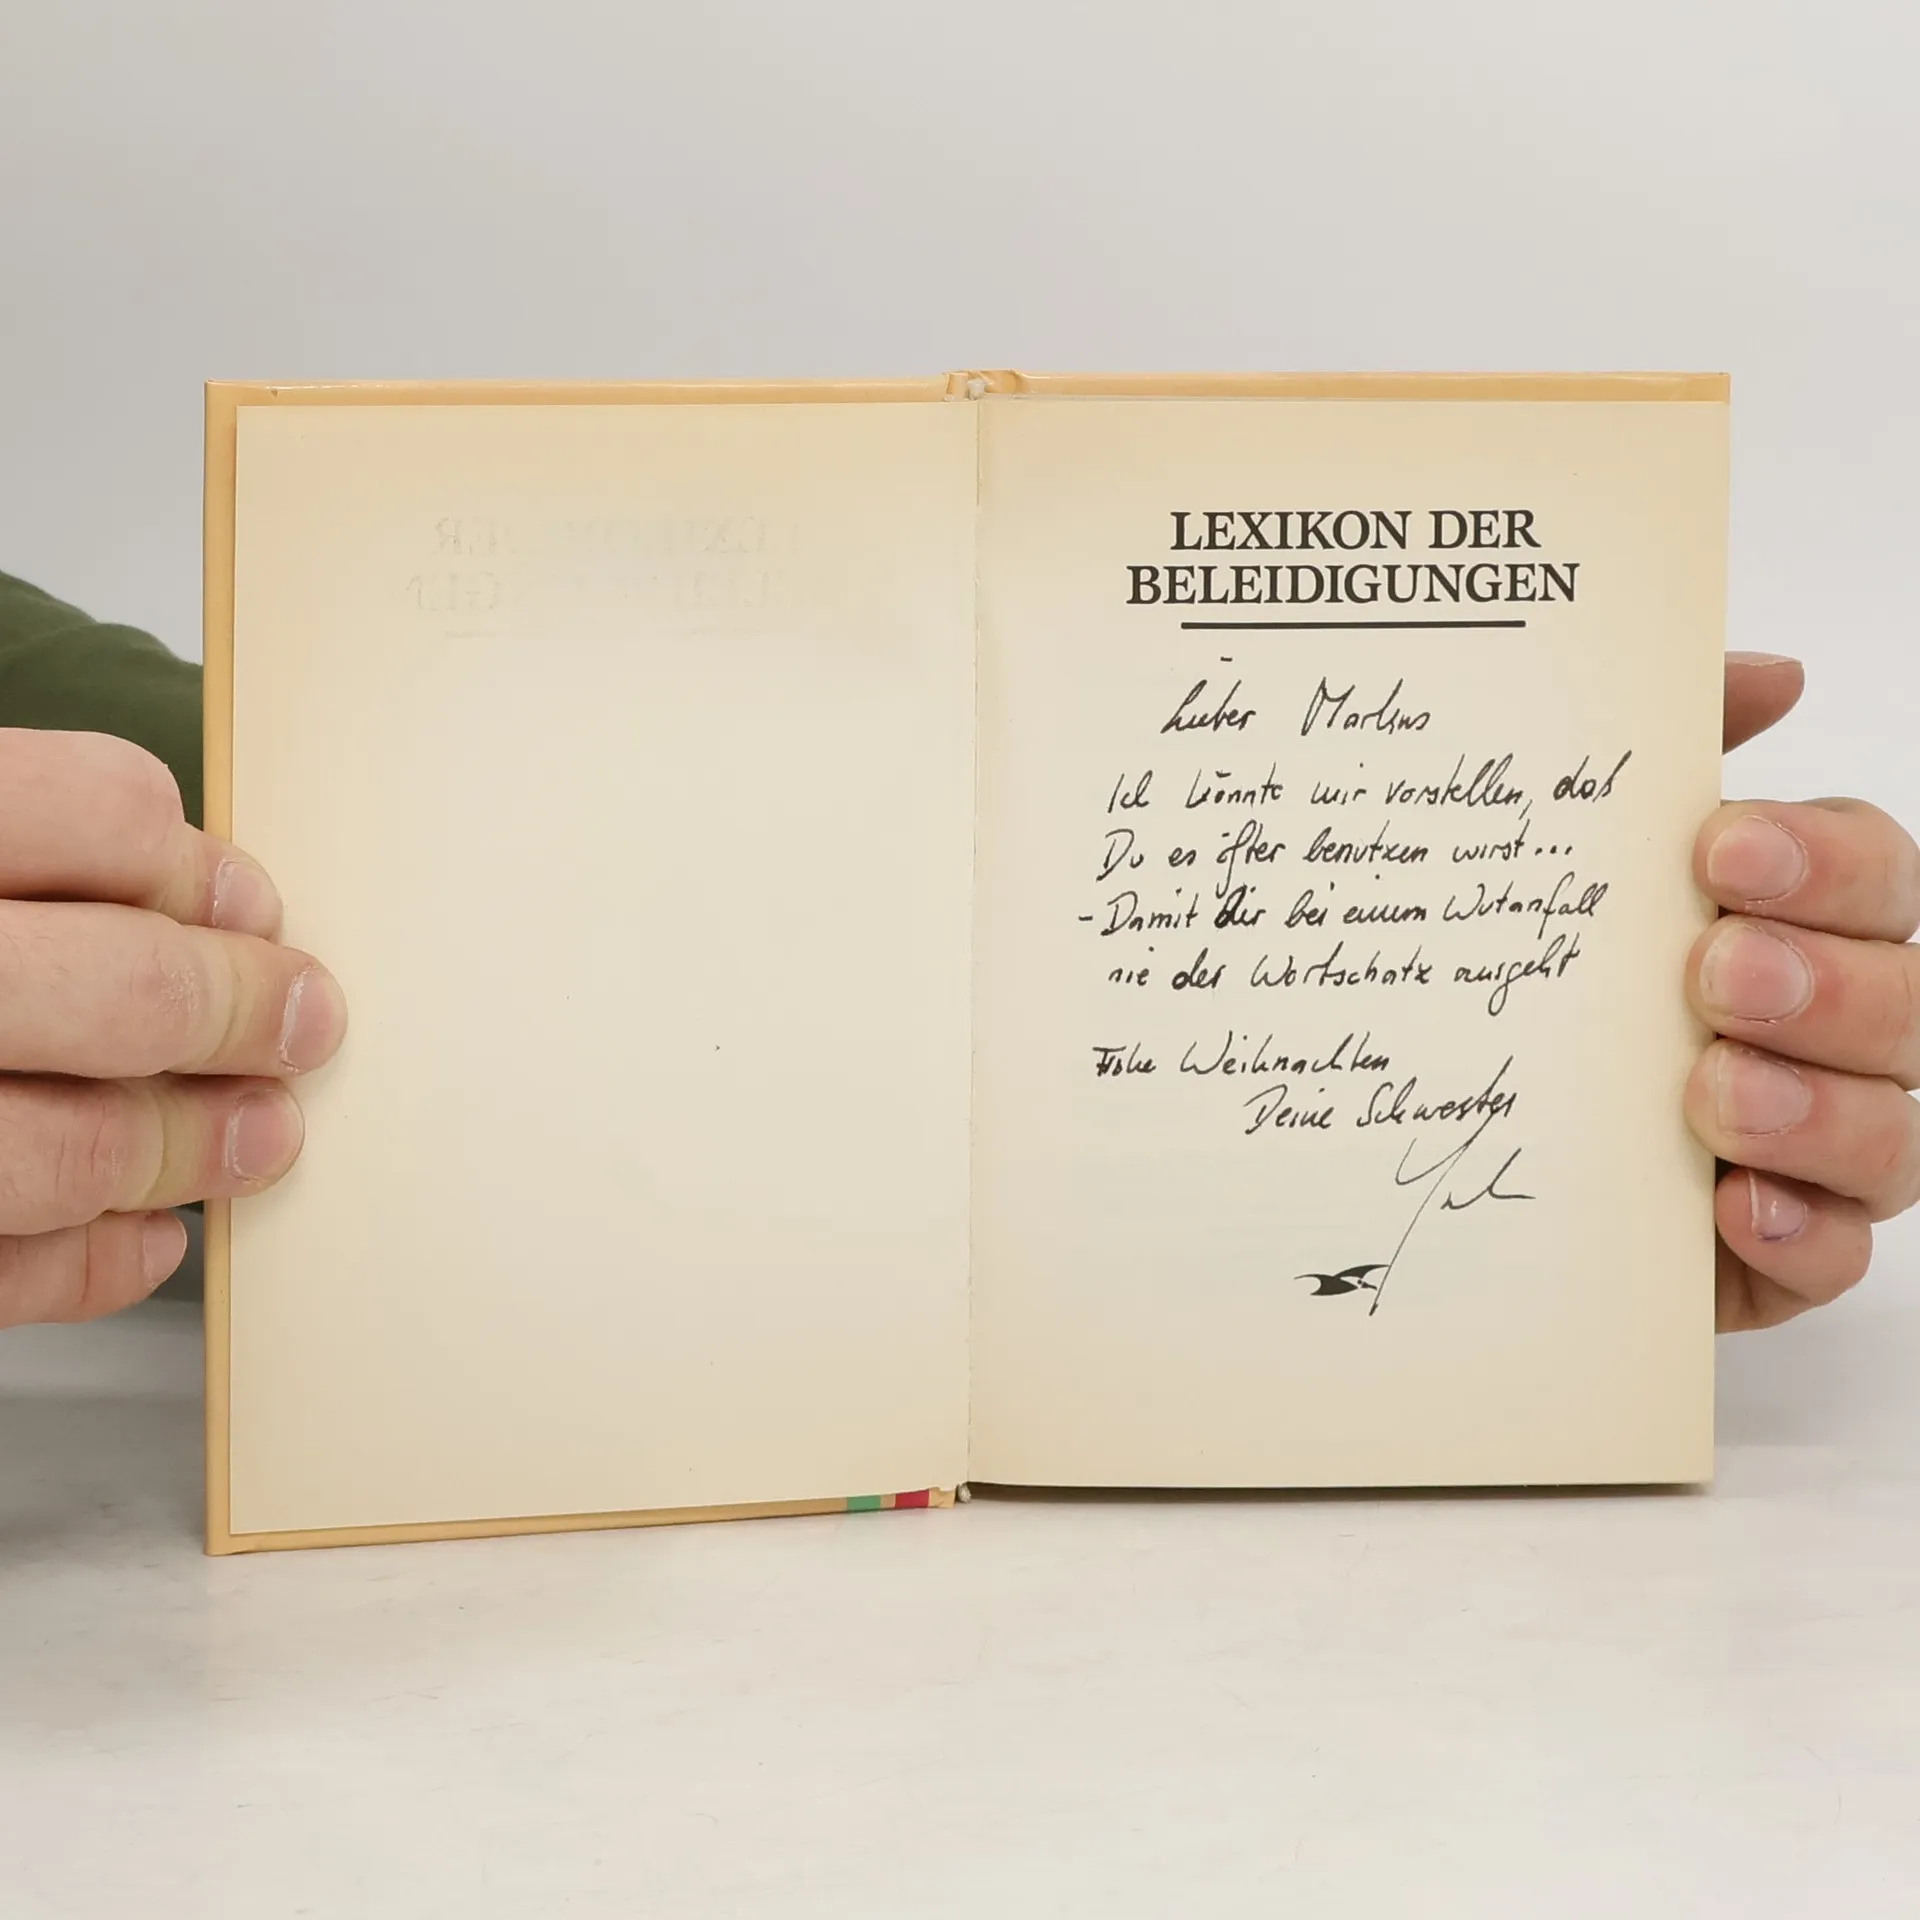 LEXIKON DER
BELEIDIGUNGEN
Lieber Markus
Ich könnte mir vorstellen, daß
Du es öfter benutzen wirst...
- Damit dir bei einem Wutanfall
nie der Wortschatz ausgeht
Frohe Weihnachten
Deine Schwester